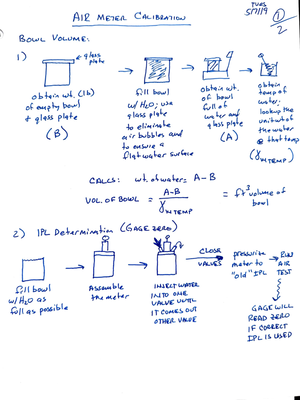 AIR METER CALIBRATION
TUES
5/7/19
1/2
BOWL VOLUME:
1)
glass plate
obtain wt. (lb)
of empty bowl
& glass plate
(B)
fill bowl
w/H2O; use
glass plate
to eliminate
air bubbles and
to ensure a
flat water surface
obtain wt.
of bowl
full of
water and
glass plate
(A)
obtain
temp of
water.
lookup the
unit wt of
the water
@ that temp
(γw TEMP)
CALCS: wt. of water = A-B
VOL. OF BOWL = A-B / γw TEMP = ft3 volume of bowl
2) IPL Determination (GAGE ZERO)
fill bowl
w/H2O as
full as possible
Assemble
the meter
INJECT WATER
INTO ONE
VALVE UNTIL
IT COMES OUT
OTHER VALVE
CLOSE
VALVES
pressurize
meter to
"old" IPL
RUN
AIR
TEST
GAGE WILL
READ ZERO
IF CORRECT
IPL IS USED